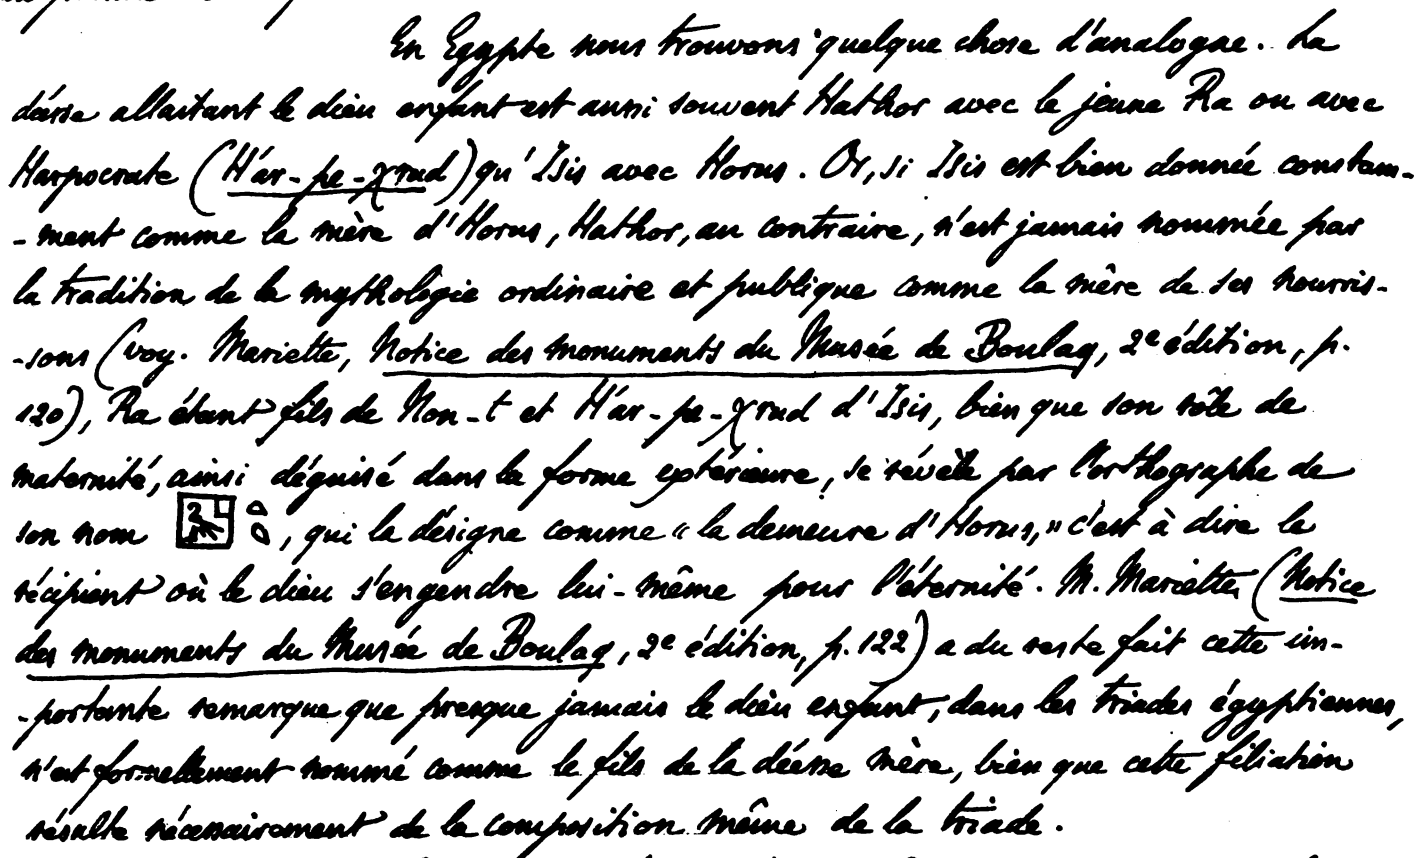 En Egypte nous trouvons quelque chose d'analogue. La
déesse allaitant le dieu enfant est aussi souvent Hathor avec le jeune Ra ou avec
Harpocrate (H'ar-pe-χrud) qu'Isis avec Horus. Or, si Isis est bien donnée constam-
-ment comme la mère d'Horus, Hathor, au contraire, n'est jamais nommée par
la tradition de la mythologie ordinaire et publique comme la mère de ses nourris-
-sons (voy. Mariette, Notice des monuments du Musée de Boulaq, 2e édition, p.
120), Ra étant fils de Non-t et H'ar-pe-χrud d'Isis, bien que son rôle de
maternité, ainsi déguisé dans la forme extérieure, se révèle par l'orthographe de
son nom , qui la désigne comme « la demeure d'Horus, » c'est à dire le
récipient où le dieu s'engendre lui-même pour l'éternité. M. Mariette (Notice
des monuments du Musée de Boulaq, 2e édition, p. 122) a du reste fait cette im-
-portante remarque que presque jamais le dieu enfant, dans les triades égyptiennes,
n'est formellement nommé comme le fils de la déesse mère, bien que cette filiation
résulte nécessairement de la composition même de la triade.